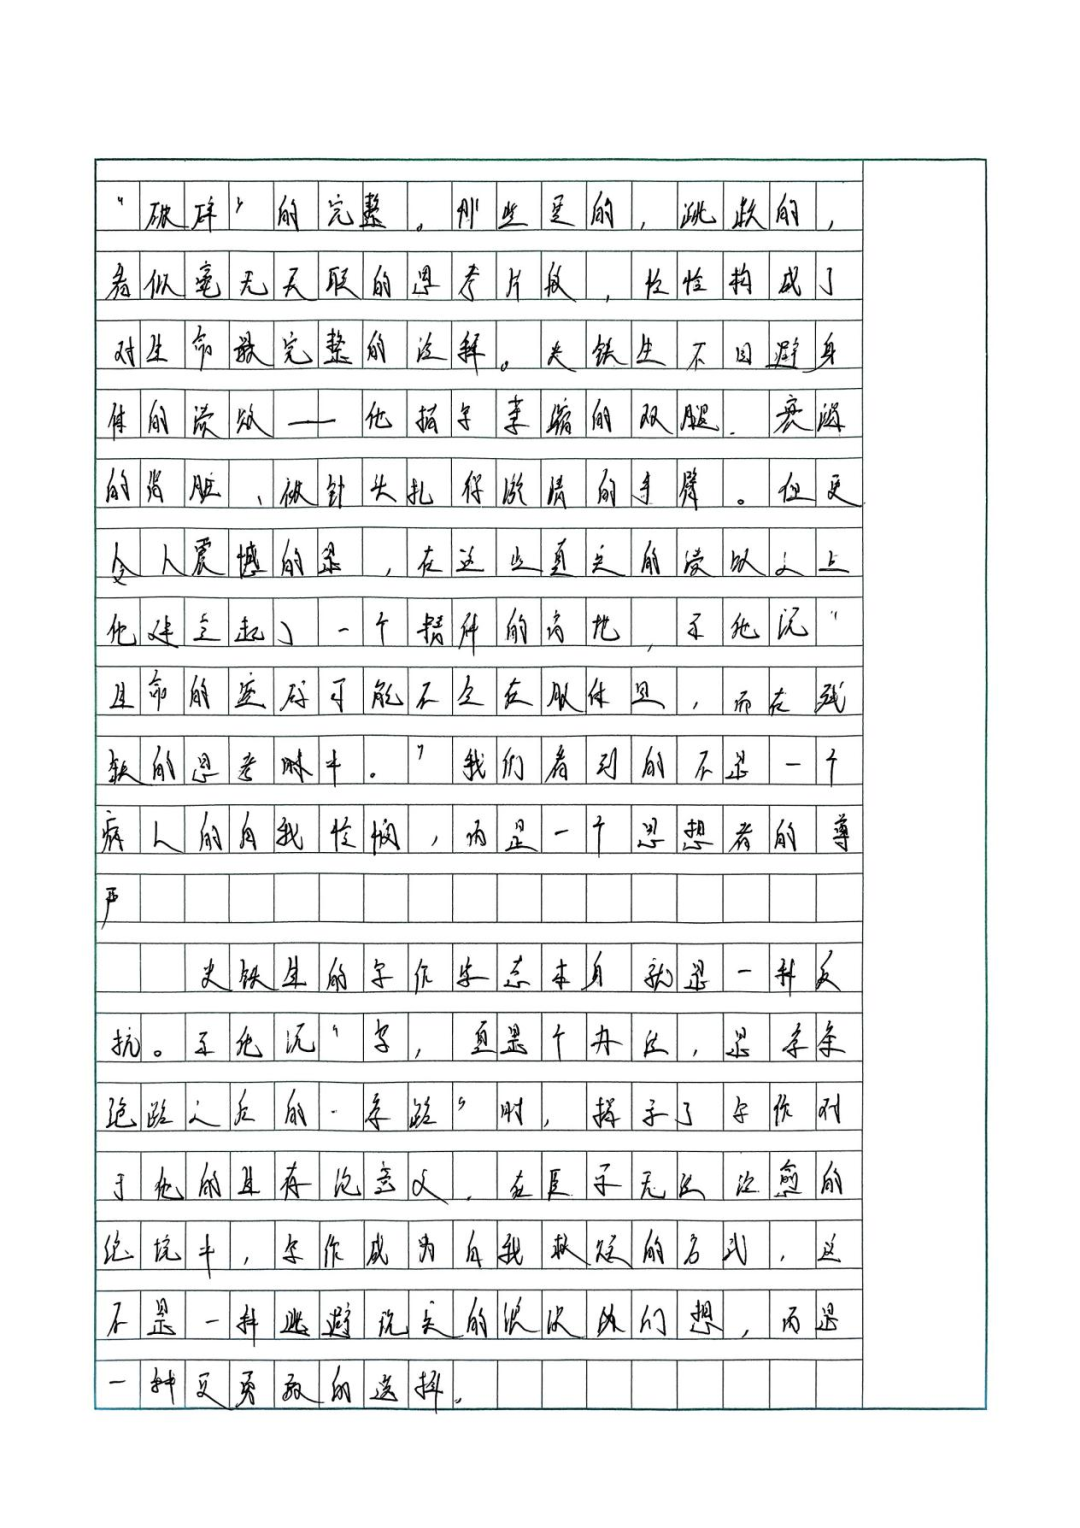 “破碎”的完整。那些是的，跳跃的，
看似毫无关联的思考片段，恰恰构成了
对生命最完整的注释。史铁生不回避身
体的溃败——他描写萎缩的双腿、衰竭
的肾脏、被针头扎得淤青的手臂。但更
令人震撼的是，在这些真实的溃败之上
他建立起了一个精神的高地，了他说“
且命的密码可能不全在肢体里，而在残
缺的思考时中。”我们看到的不是一个
病人的自我怜悯，而是一个思想者的尊
严
史铁生的写作生态本身就是一种反
抗。了他说“写，真是个办法，是条条
绝路之后的一条路”时，揭示了写作对
于他的且存论意义，在医学无法治愈的
绝境中，写作成为自我救赎的方式，这
不是一种逃避现实的浪漫幻想，而是
一种更勇敢的选择。